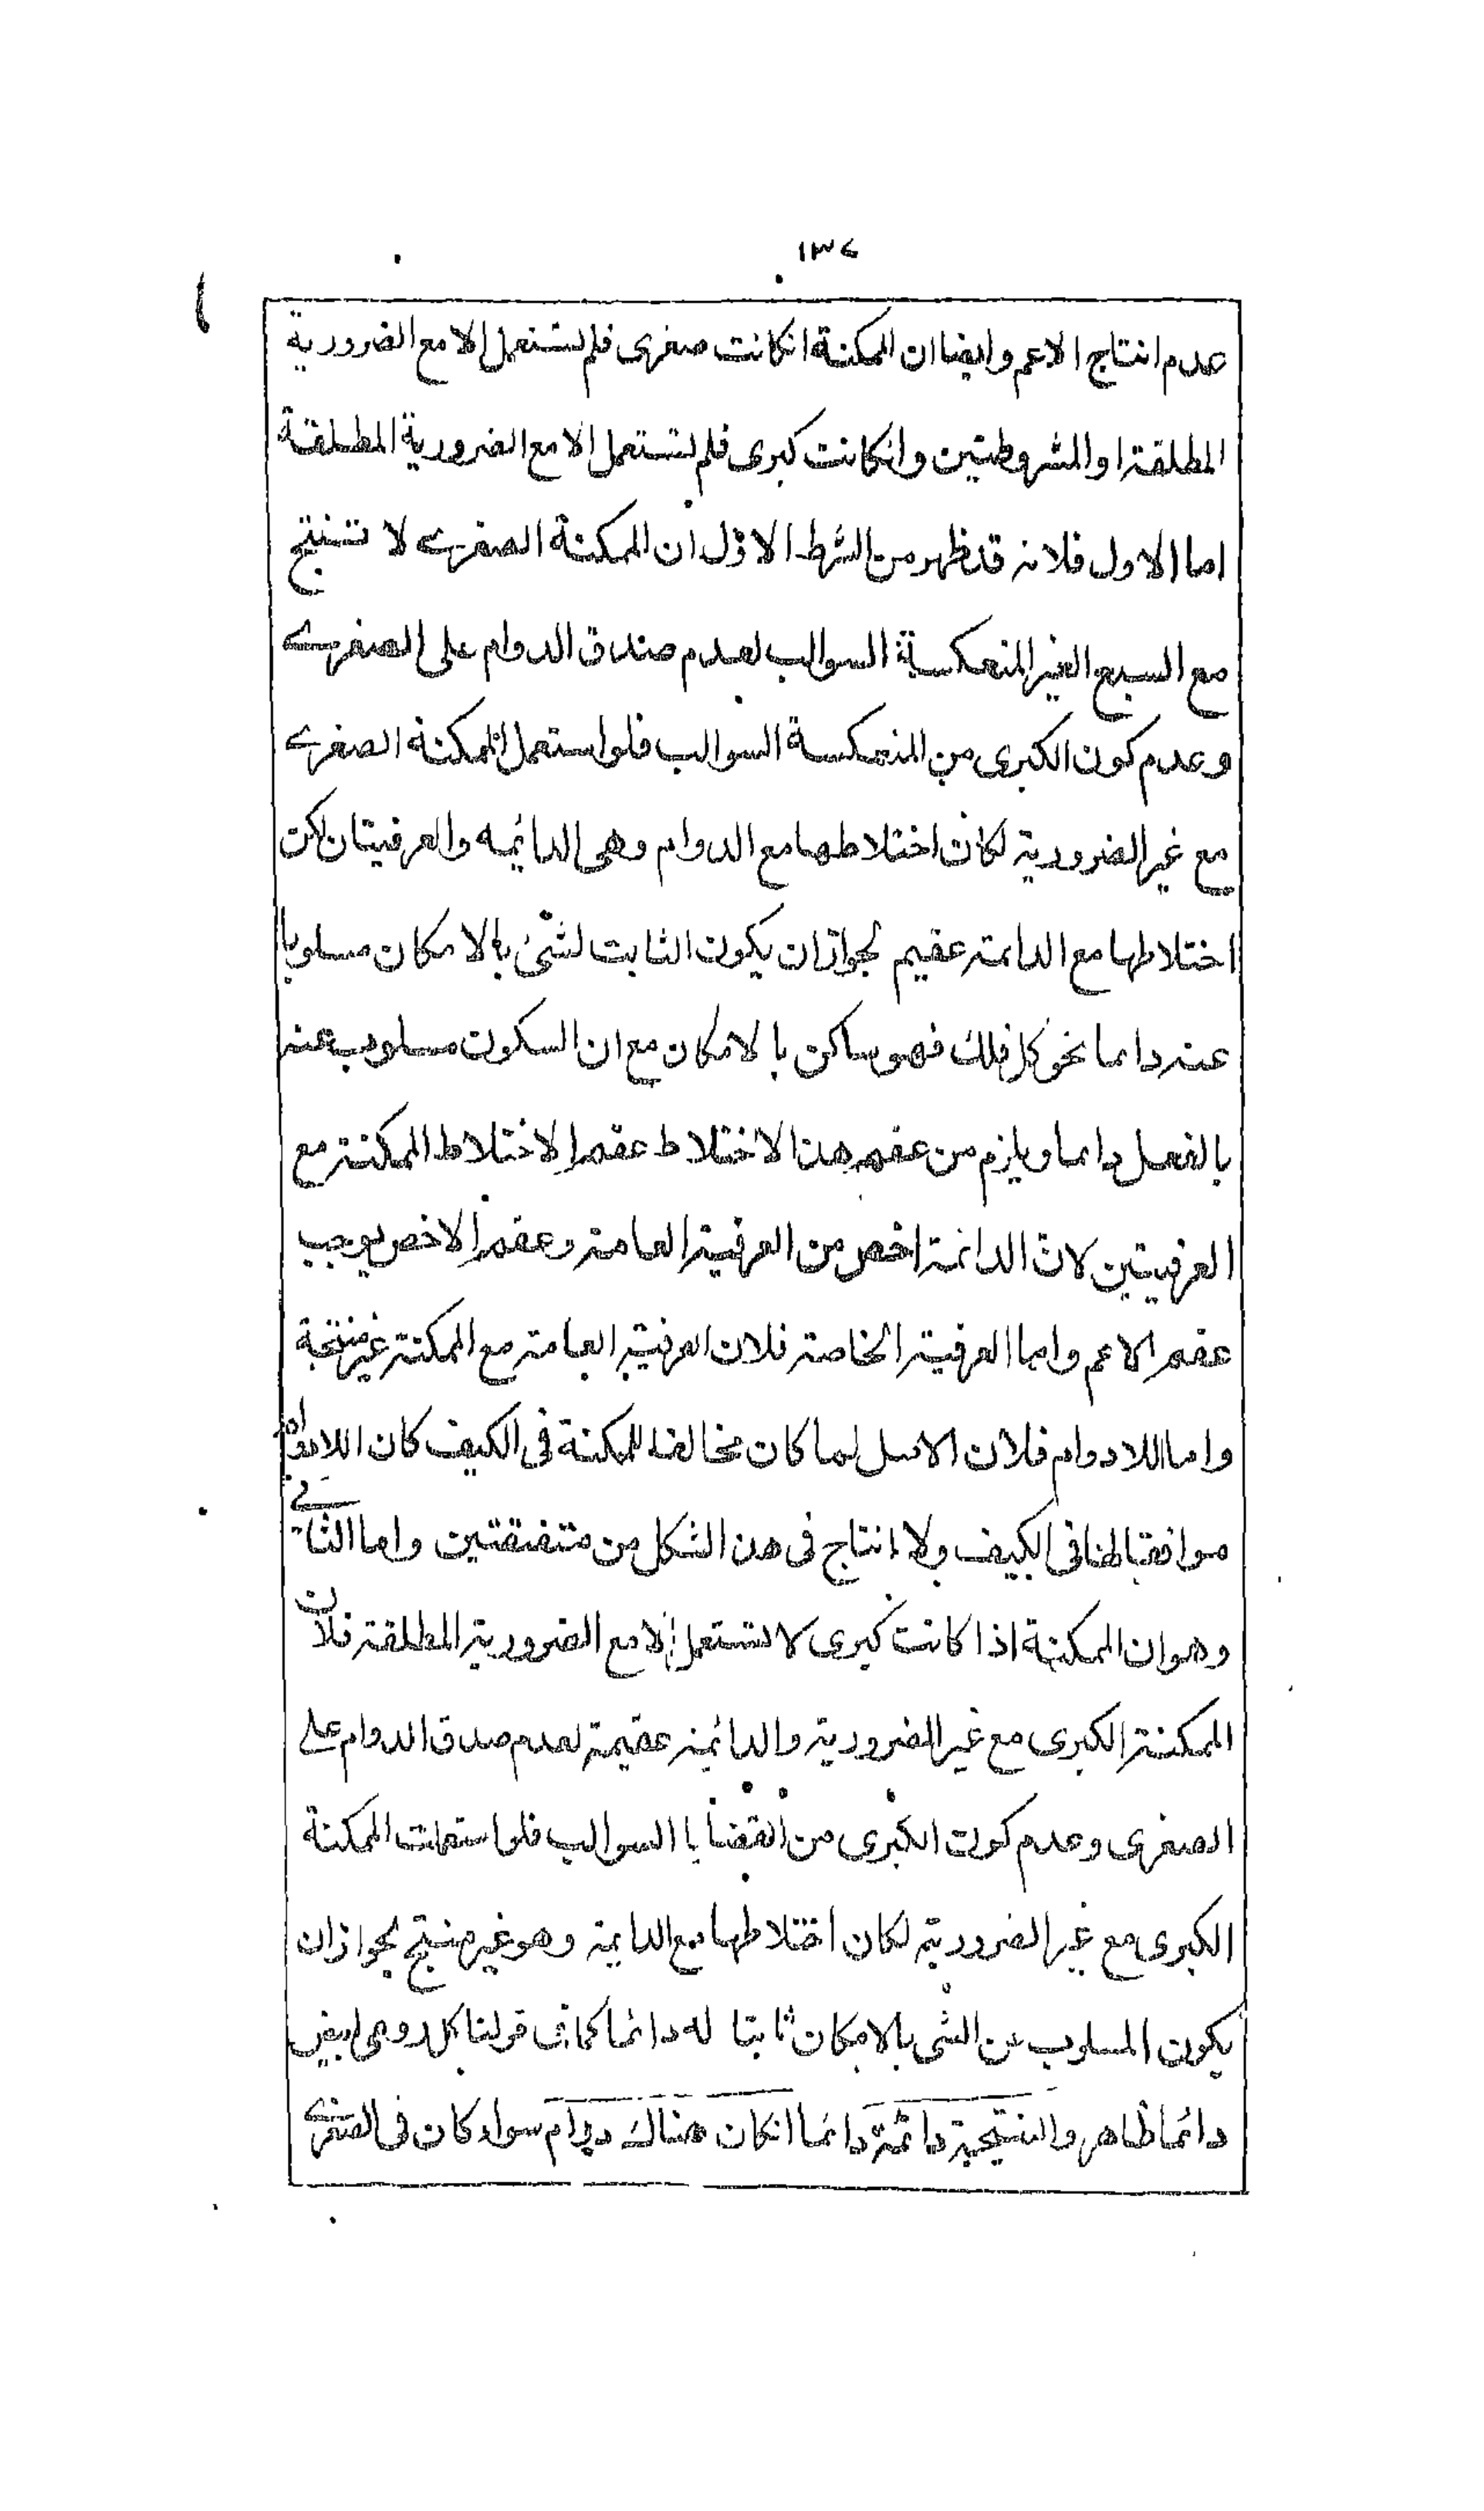 ١٣٤
عدم انتاج الاعم وايضا ان الممكنة انكانت صغرى فلم تستعمل الا مع الضرورية
المطلقة او المشروطتين وانكانت كبرى فلم تستعمل الا مع الضرورية المطلقة
اما الاول فلانه قد ظهر من الشرط الاول ان الممكنة الصغرى لا تنتج
مع السبع الغير المنعكسة السوالب لعدم صدق الدوام على الصغرى
وعدم كون الكبرى من المنعكسة السوالب فلو استعمل الممكنة الصغرى
مع غير الضرورية لكان اختلاطها مع الدوام وهى الدائمه والعرفيتان لكن
اختلاطها مع الدائمة عقيم لجواز ان يكون الثابت لشئ بالامكان مسلوبا
عنه دائما نحو كل فلك فهو ساكن بالامكان مع ان السكون مسلوب عنه
بالفعل دائما ويلزم من عقم هذا الاختلاط عقم الاختلاط الممكنة مع
العرفيتين لان الدائمة اخص من العرفية العامة وعقم الاخص يوجب
عقم الاعم واما العرفية الخاصة فلان العرفية العامة مع الممكنة غير منتجة
واما اللادوام فلان الاصل لما كان مخالفا للممكنة فى الكيف كان اللادوام
موافقا لها فى الكيف ولا انتاج فى هذا الشكل من متفقتين واما الثانى
وهو ان الممكنة اذا كانت كبرى لا تستعمل الا مع الضرورية المطلقة فلان
الممكنة الكبرى مع غير الضرورية والدائمة عقيمة لعدم صدق الدوام على
الصغرى وعدم كون الكبرى من القضايا السوالب فلو استعملت الممكنة
الكبرى مع غير الضرورية لكان اختلاطها مع الدايمة وهو غير منتج لجواز ان
يكون المسلوب عن الشى بالامكان ثابتا له دائما كما فى قولنا كل رومى ابيض
دائما ظاهر والنتيجة دائمة دائما انكان هناك دوام سواء كان فى الصغرى